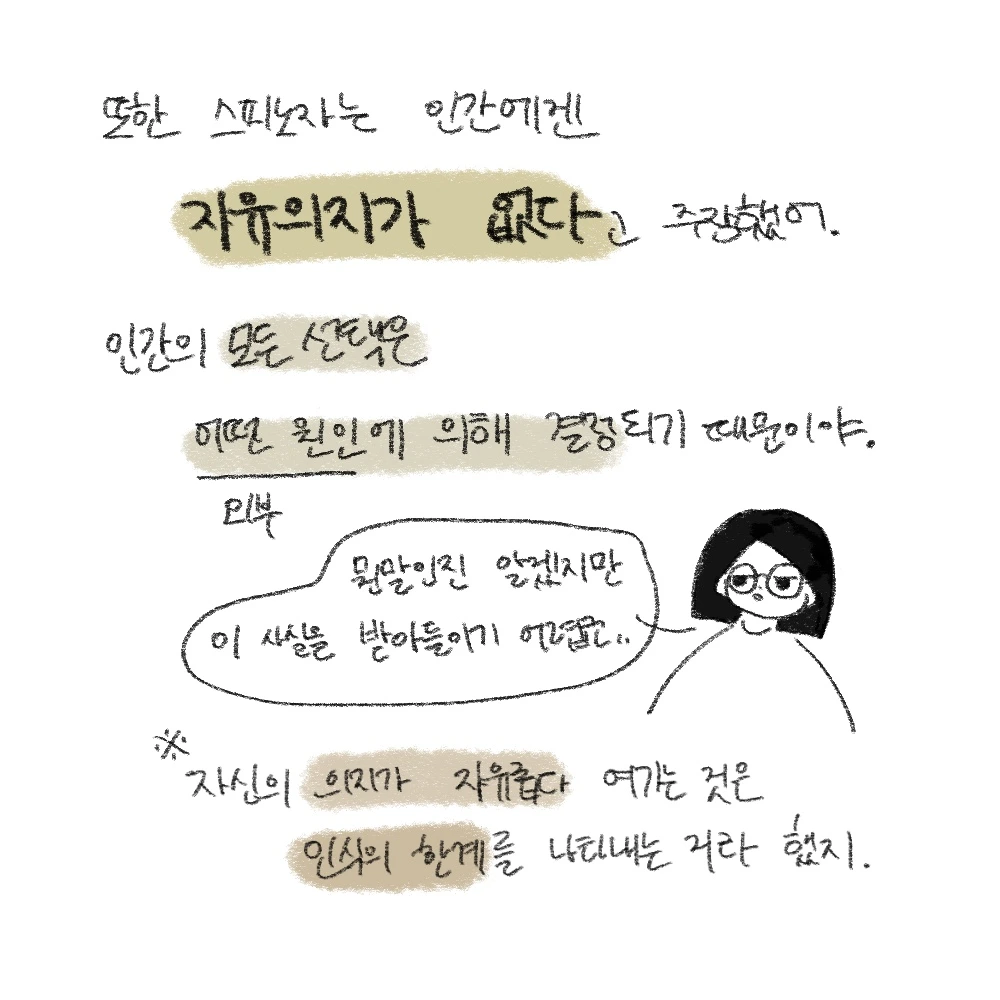 또한 스피노자는 인간에겐
자유의지가 없다고 주장했어.
인간의 모든 선택은
어떤 원인에 의해 결정되기 때문이야.
외부
뭔말인진 알겠지만
이 사실을 받아들이기 어렵군..
※
자신의 의지가 자유롭다 여기는 것은
인식의 한계를 나타내는 거라 했지.